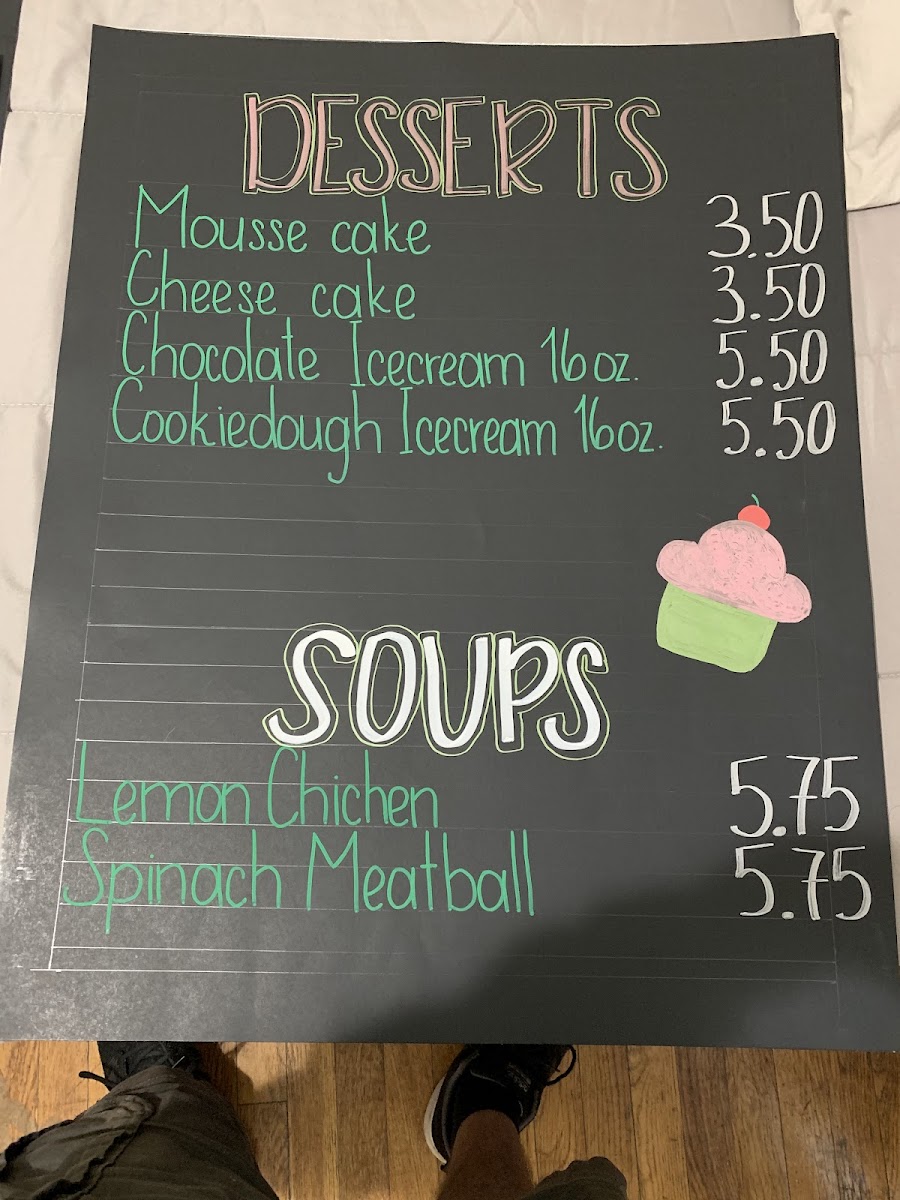 DESSERTS
Mousse cake 3.50
Cheese cake 3.50
Chocolate Icecream 16oz. 5.50
Cookiedough Icecream 16oz. 5.50
SOUPS
Lemon Chichen 5.75
Spinach Meatball 5.75